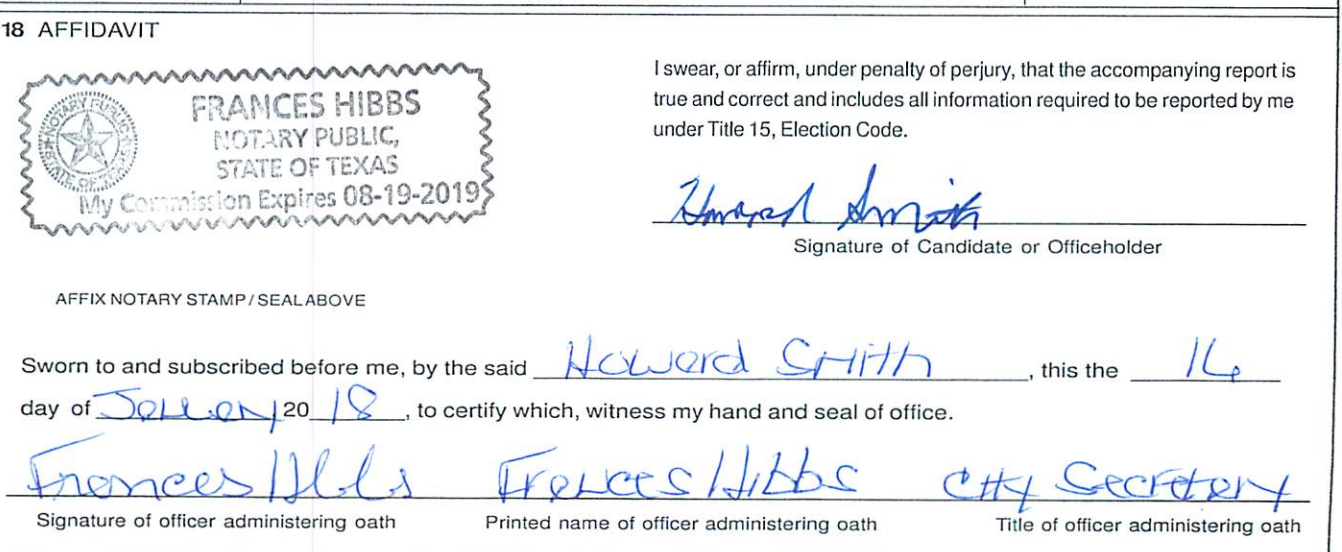 18 AFFIDAVIT
FRANCES HIBBS
NOTARY PUBLIC,
STATE OF TEXAS
My Commission Expires 08-19-2019
NOTARY PUBLIC
STATE OF TEXAS
I swear, or affirm, under penalty of perjury, that the accompanying report is
true and correct and includes all information required to be reported by me
under Title 15, Election Code.
Howard Smith
Signature of Candidate or Officeholder
AFFIX NOTARY STAMP / SEAL ABOVE
Sworn to and subscribed before me, by the said Howard Smith, this the 16
day of January 20 18, to certify which, witness my hand and seal of office.
Frances Hibbs Frances Hibbs City Secretary
Signature of officer administering oath Printed name of officer administering oath Title of officer administering oath